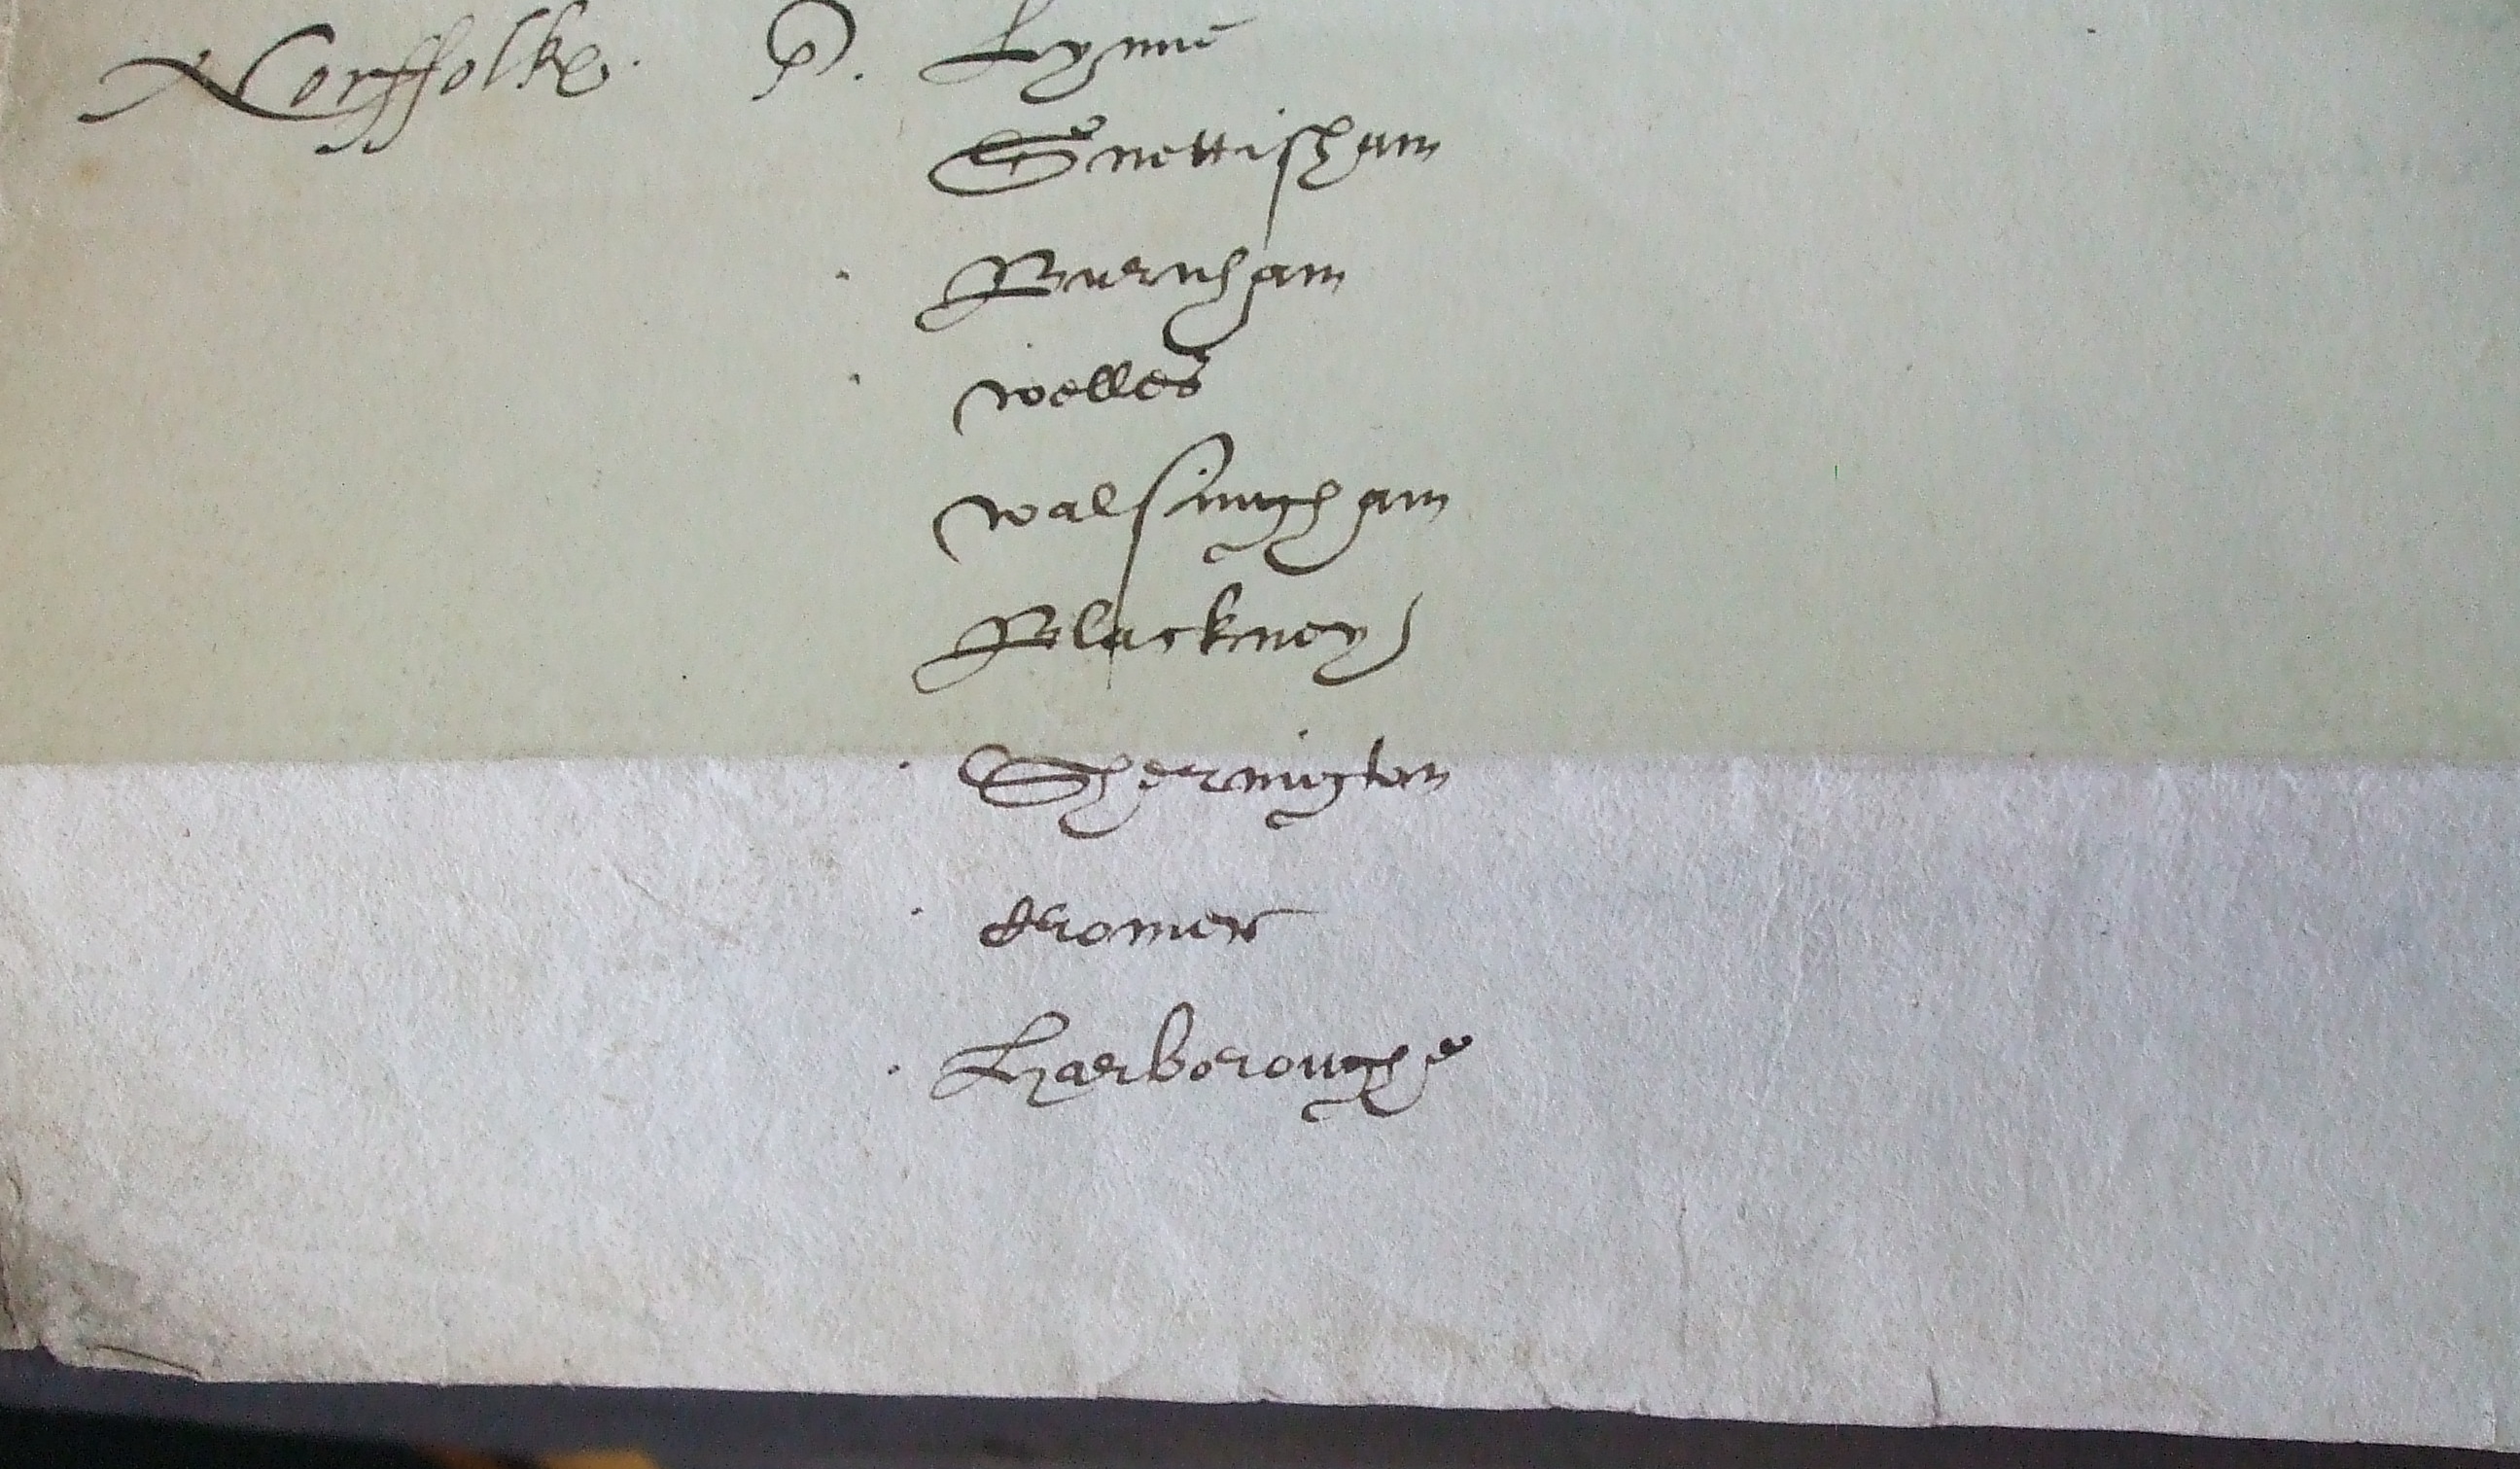 Norffolke. P. Lynne
Snettisham
Burnham
welles
walsingham
Blackney
Sherington
Cromer
Harboroughe